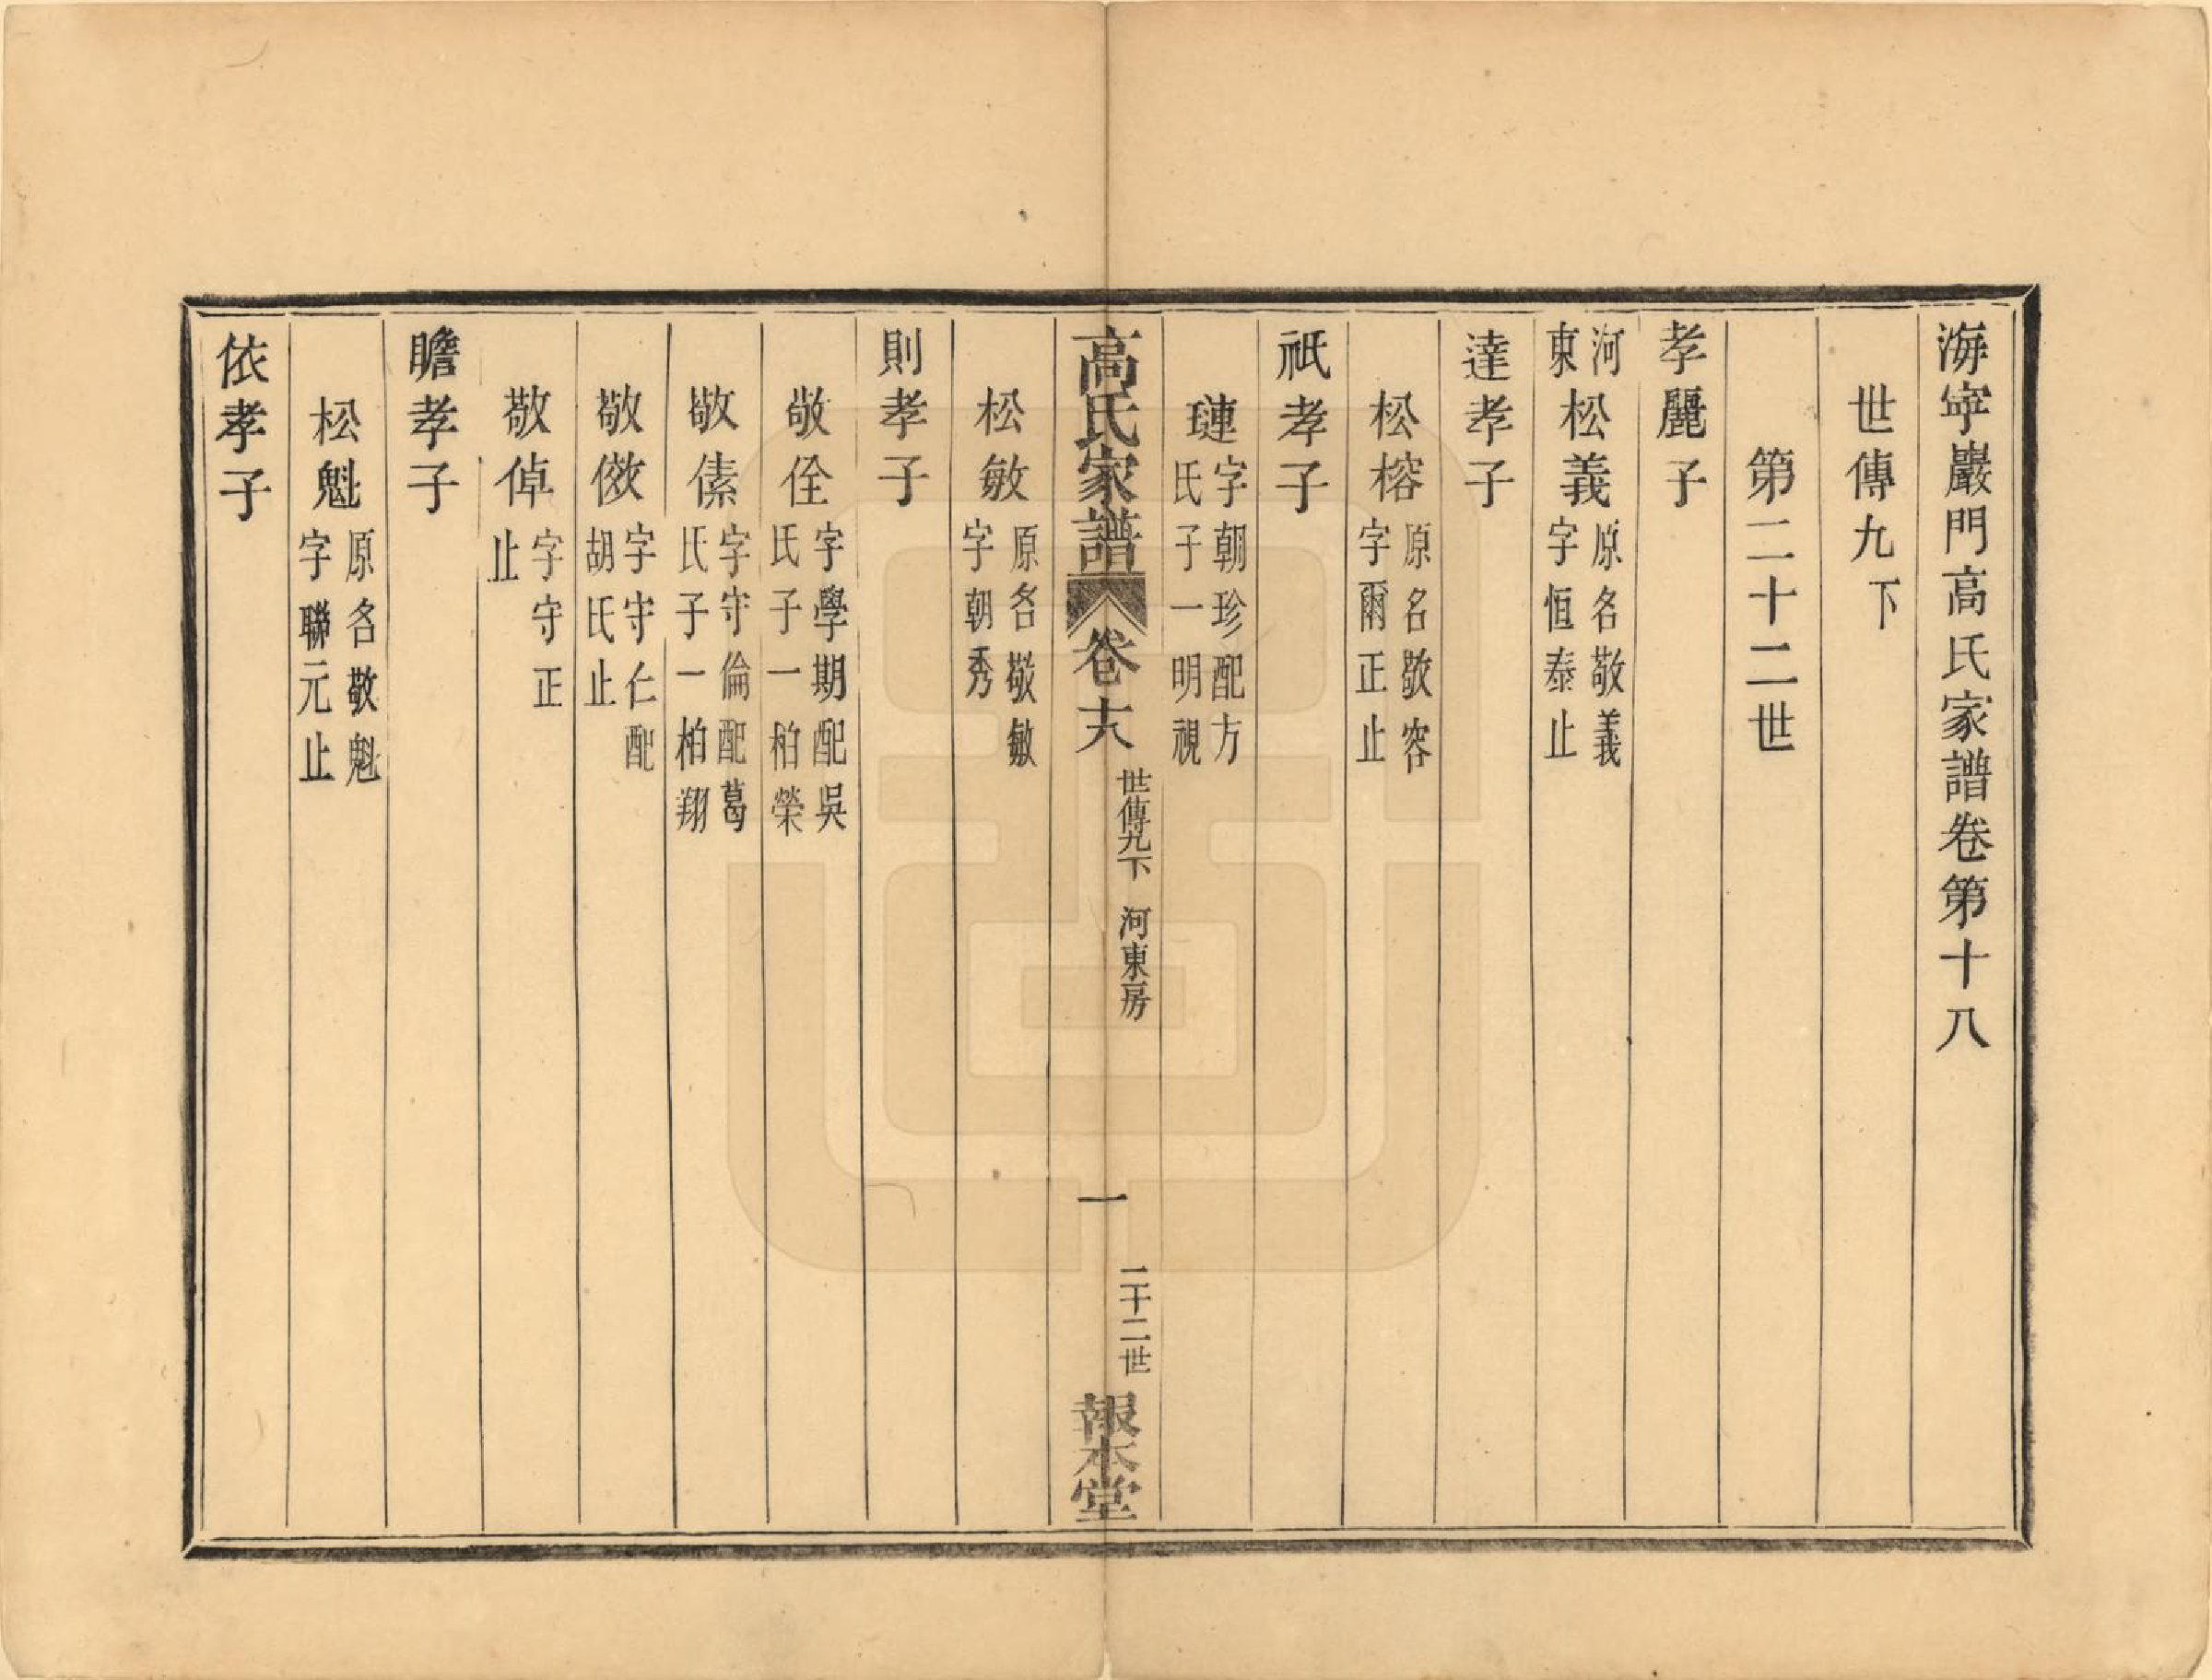 海寧巖門高氏家譜卷第十八
世傳九下
第二十二世
孝麗子
河東 松義 原名敬義字恒泰止
達孝子
松榕 原名敬容字爾正止
祇孝子
璉 字朝珍配方氏子一明視
高氏家譜 卷十八 世傳九下 河東房 一 二十二世 報本堂
松敏 原名敬敏字朝秀
則孝子
敬佺 字學期配吳氏子一柏榮
敬傃 字守倫配葛氏子一柏翔
敬傚 字守仁配胡氏止
敬倬 字守正止
瞻孝子
松魁 原名敬魁字聯元止
依孝子